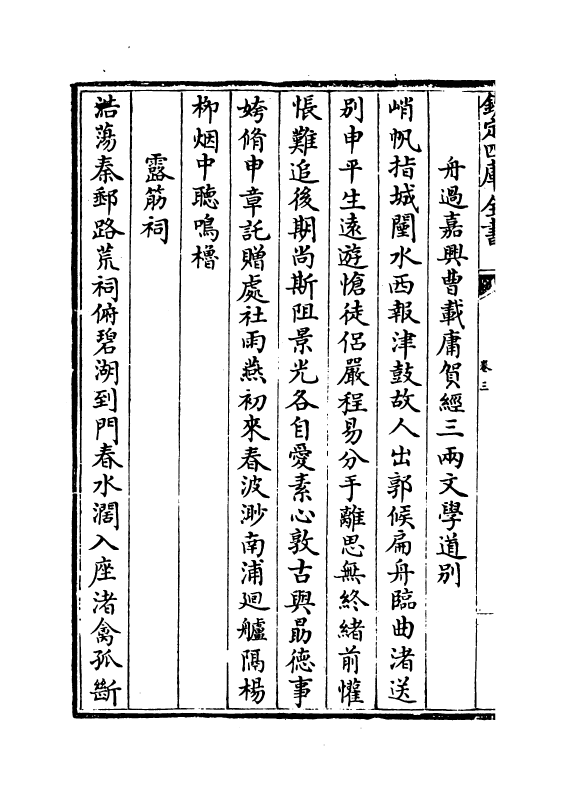 欽定四庫全書
卷三
舟過嘉興曹載庸賀經三兩文學道別
峭帆指城闉水西報津鼓故人出郭候扁舟臨曲渚送
別申平生遠遊愴徒侶嚴程易分手離思無終緒前懽
悵難追後期尚斯阻景光各自愛素心敦古與勗德事
姱脩申章託贈處社雨燕初來春波渺南浦迴艫隔楊
柳烟中聽鳴櫓
露筋祠
浩蕩秦郵路荒祠俯碧湖到門春水濶入座渚禽孤斷